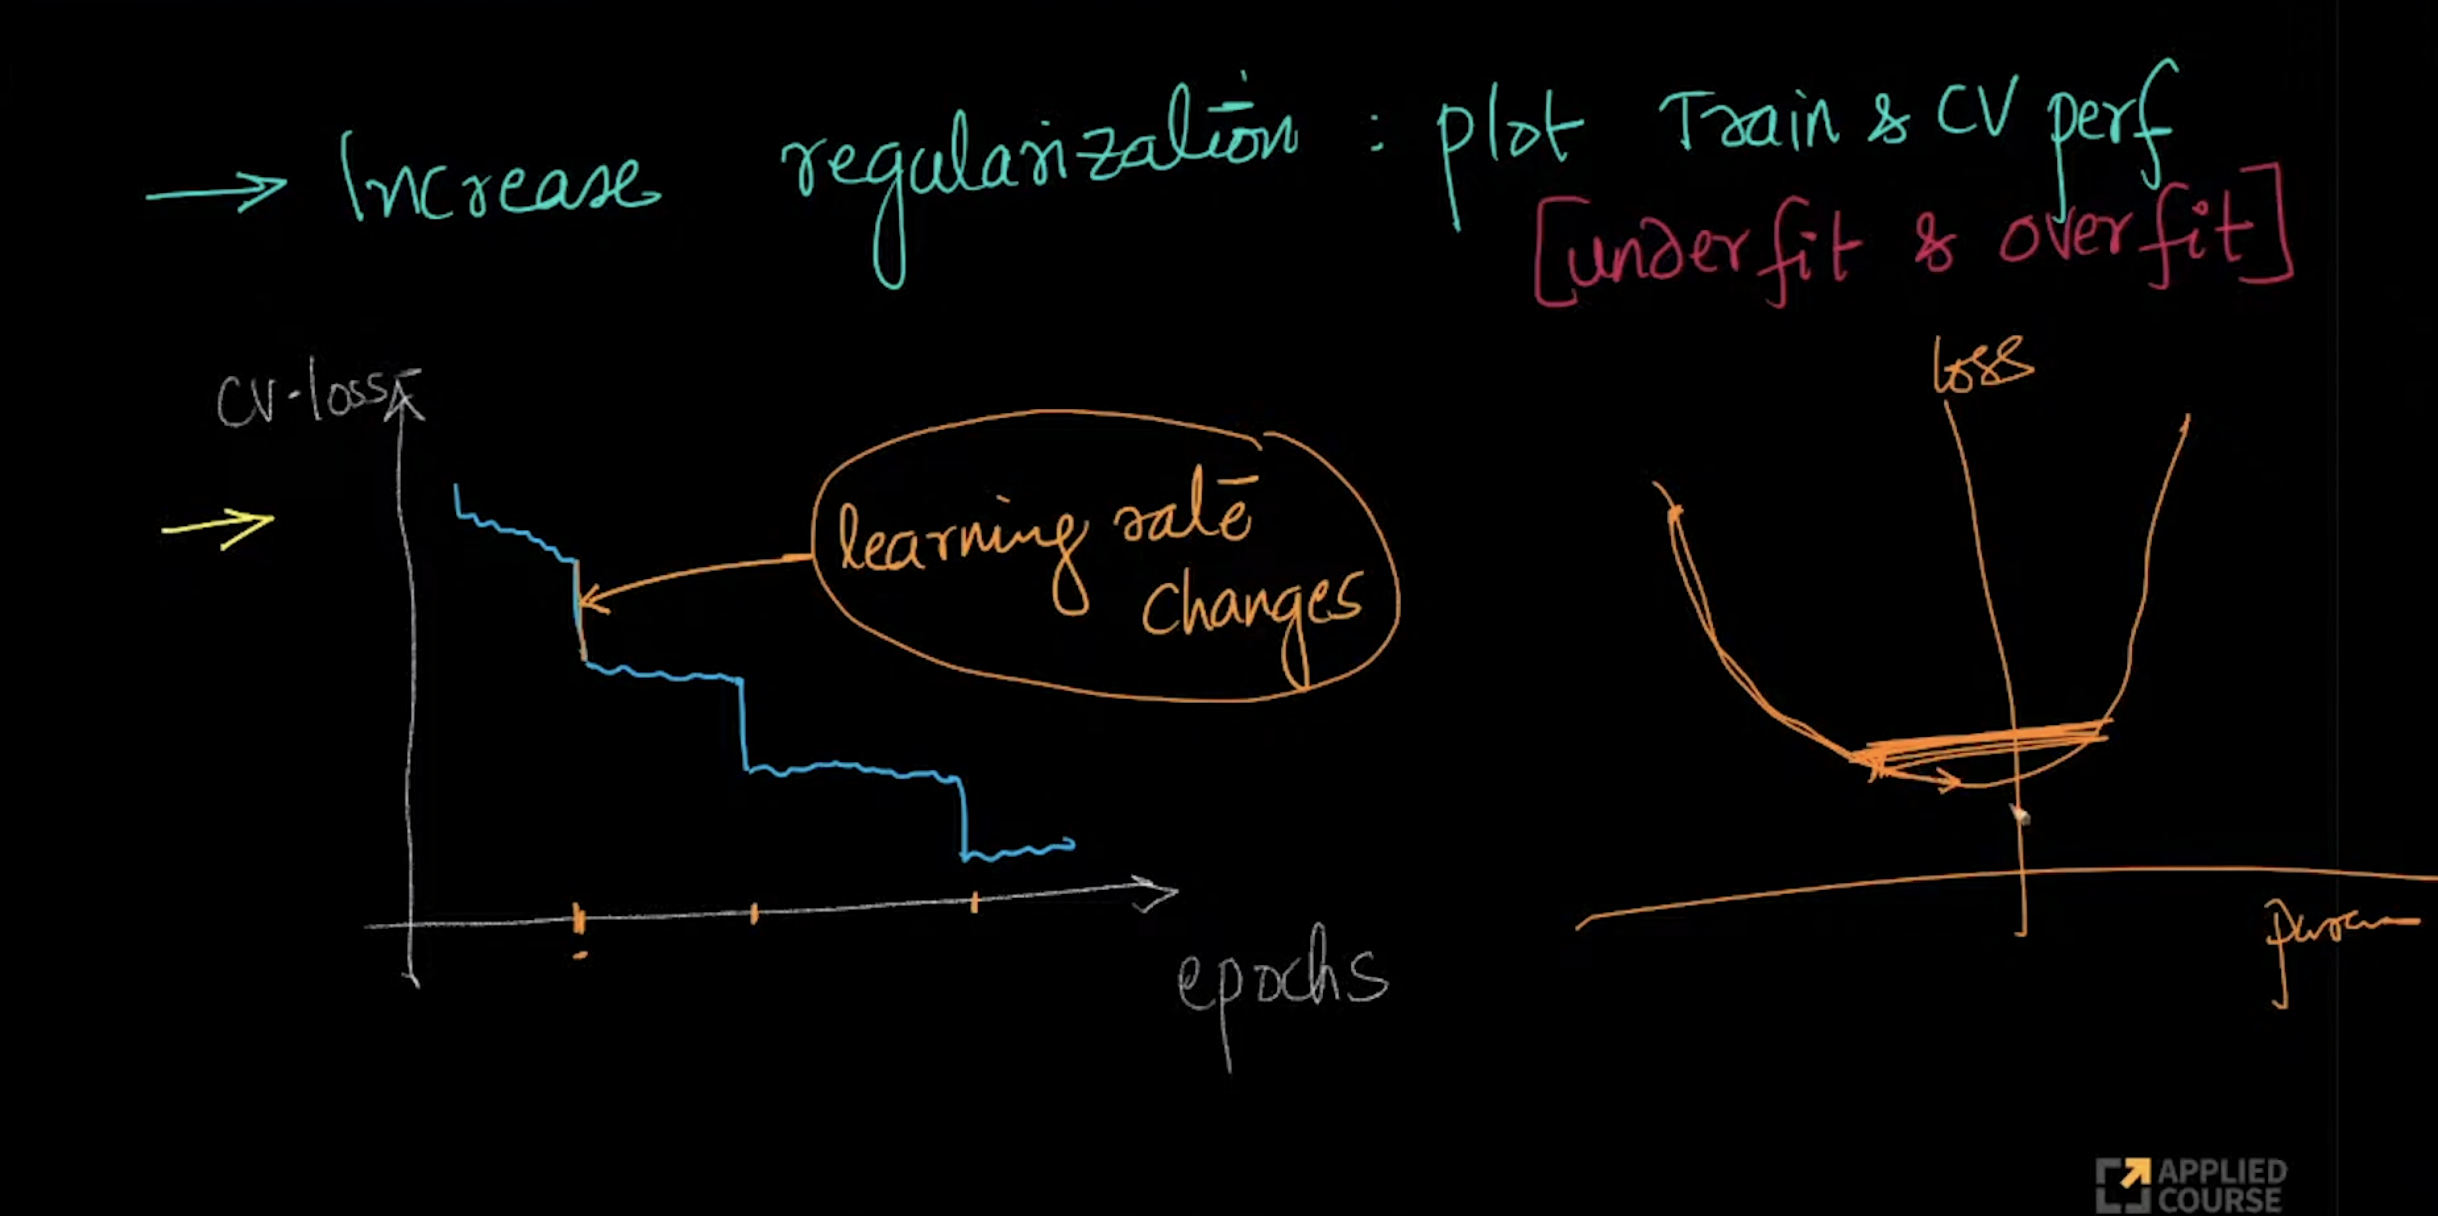 → Increase regularization : plot Train & CV perf
[underfit & overfit]
CV-loss
learning rate
changes
loss
epochs
param
APPLIED
COURSE